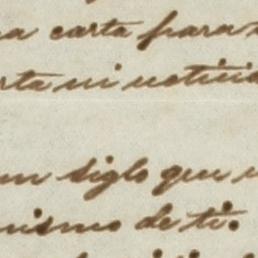 a carta para
rta ni notici
un siglo que
mismo de ti.